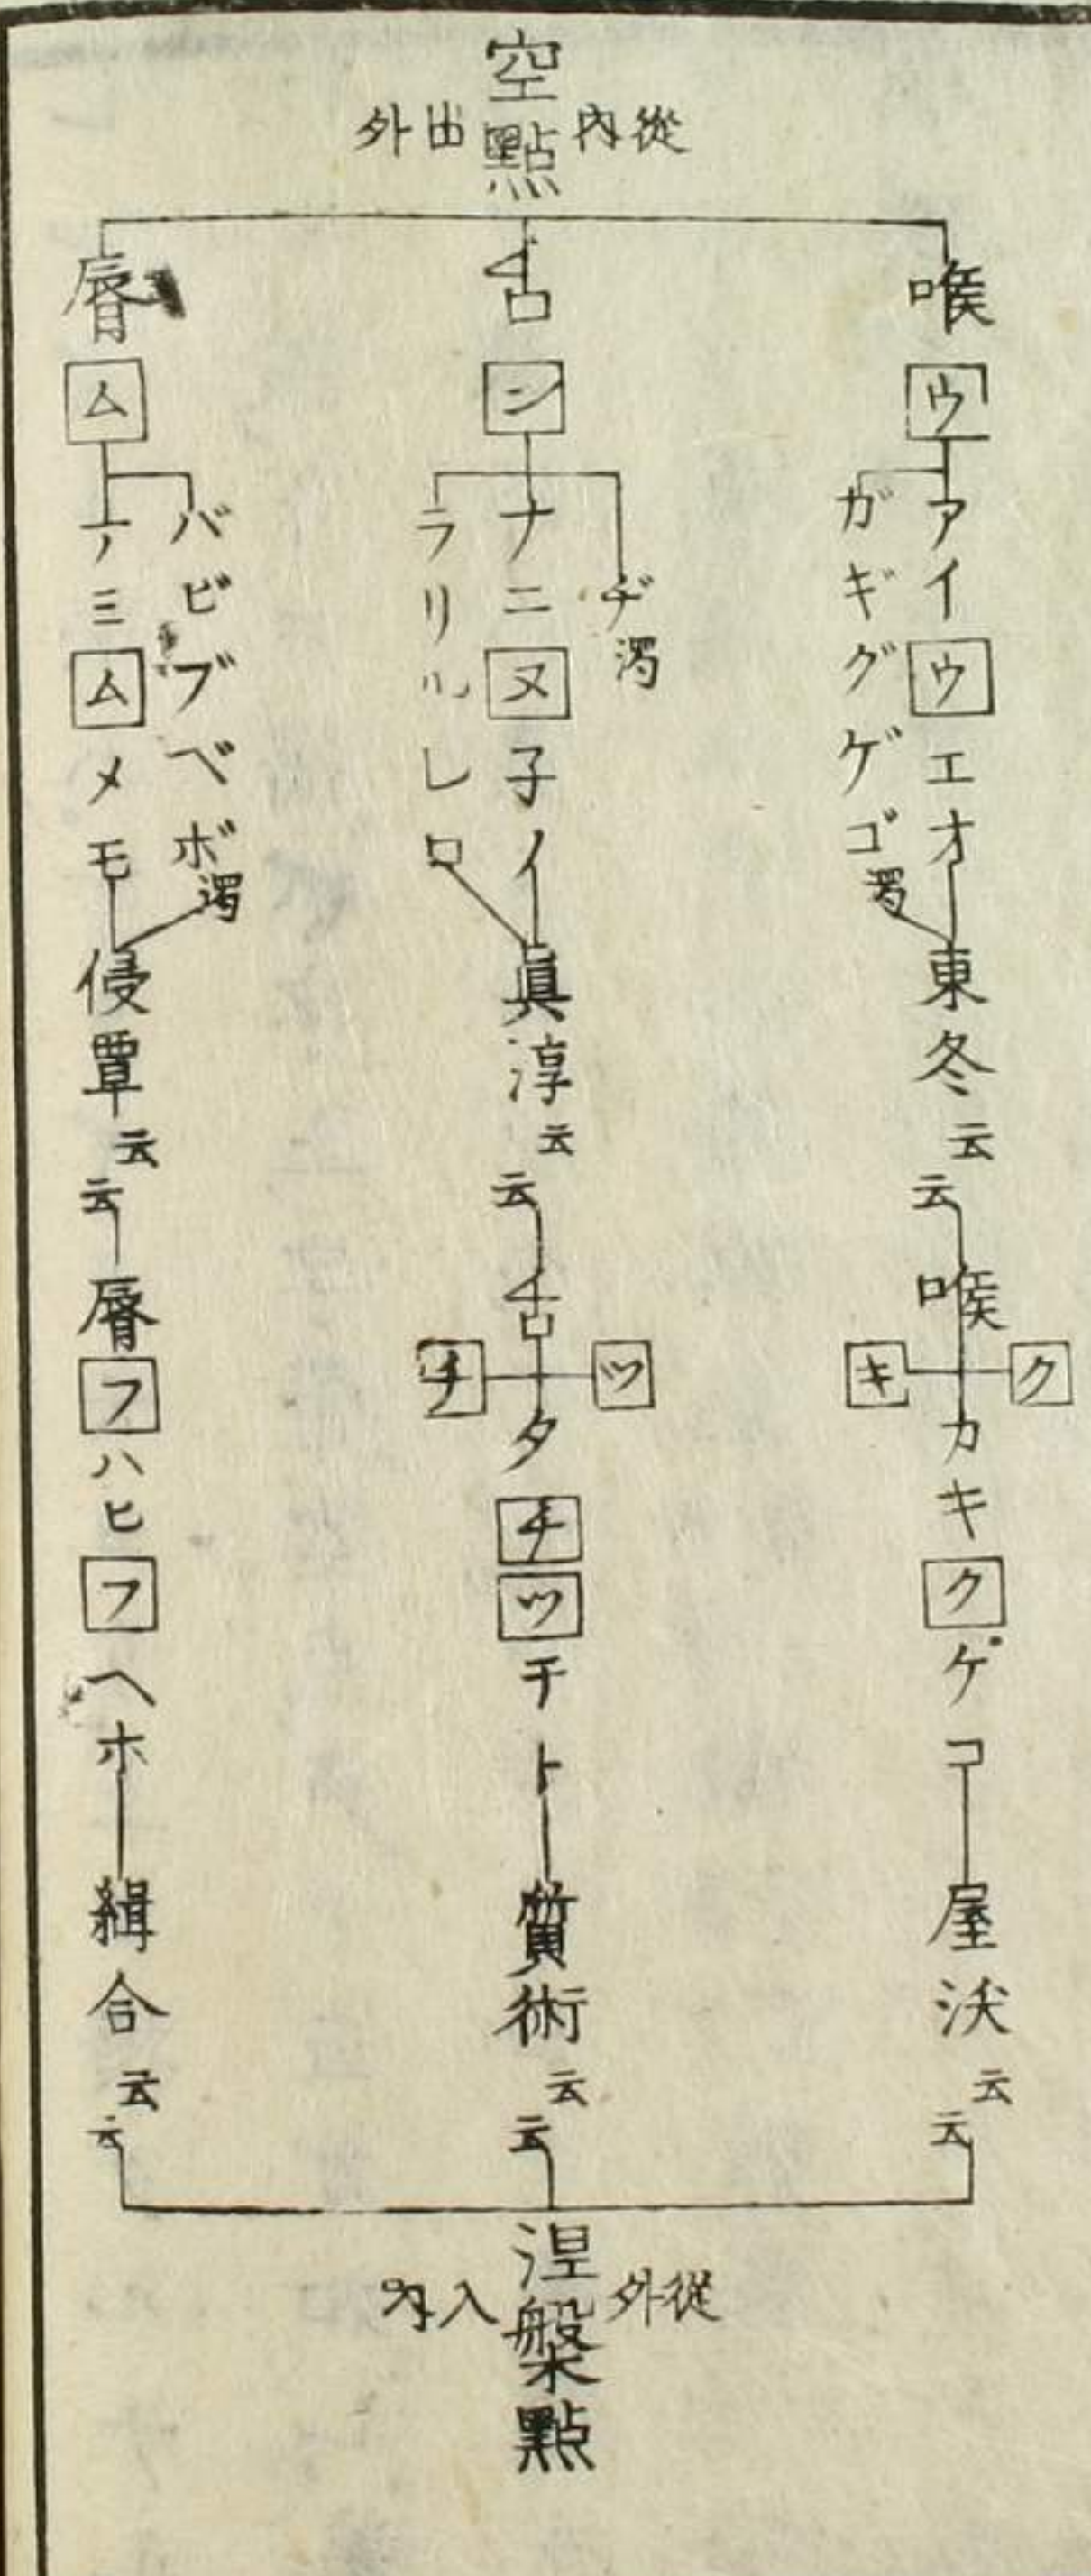 空點
從內出外
喉
ウ
アイウエオ
ガギグゲゴ濁
東冬云云
喉
ク
キ
カキクケコ
屋沃云云
舌
ン
ヂ濁
ナニヌ子ノ
ラリルレロ
眞淳云云
舌
ツ
チ
タチツテト
質術云云
脣
ム
バビブベボ濁
ミムメモ
侵覃云云
脣
フ
ハヒフヘホ
緝合云云
涅槃點
從外入內